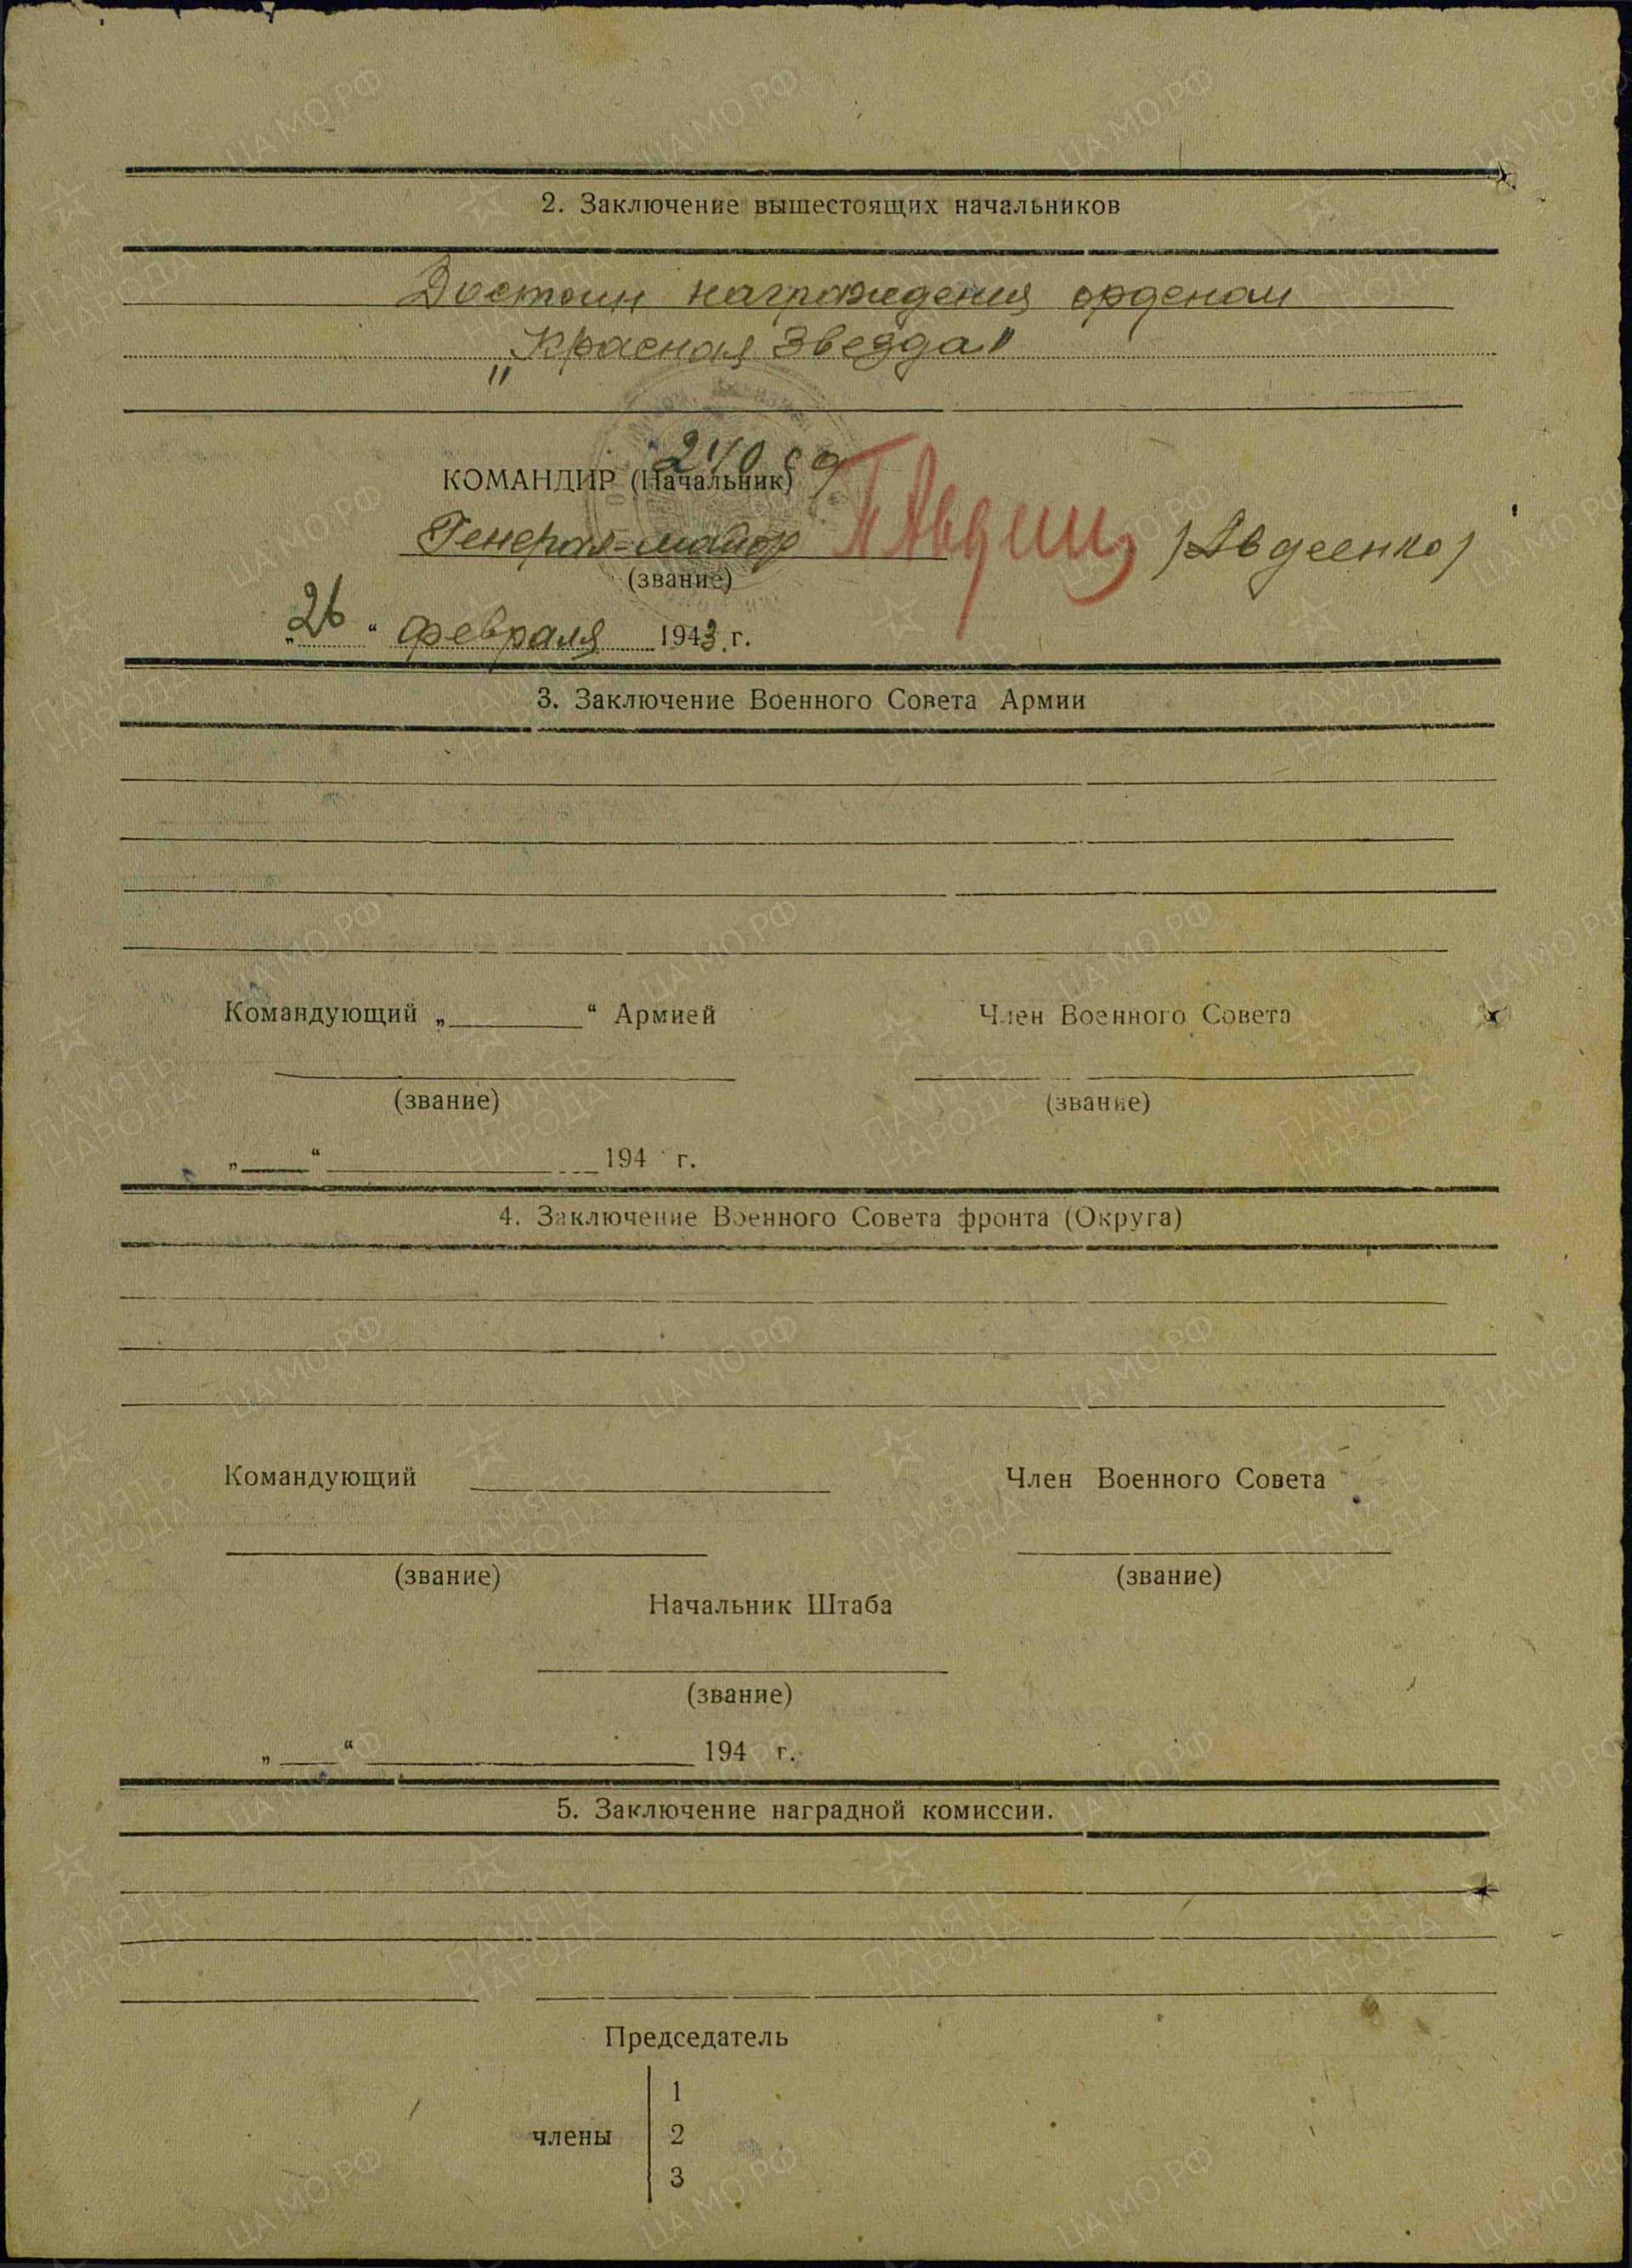 2. Заключение вышестоящих начальников
Достоин награждения орденом
„Красная Звезда"
КОМАНДИР (Начальник) 240 сд
Генерал-майор /Авдеенко/
(звание)
„26“ февраля 1943 г.
3. Заключение Военного Совета Армии
Командующий „ “ Армией Член Военного Совета
(звание) (звание)
„ “ 194 г.
4. Заключение Военного Совета фронта (Округа)
Командующий Член Военного Совета
(звание) (звание)
Начальник Штаба
(звание)
„ “ 194 г.
5. Заключение наградной комиссии.
Председатель
1
члены 2
3
ПАМЯТЬ НАРОДА
ЦА МО РФ